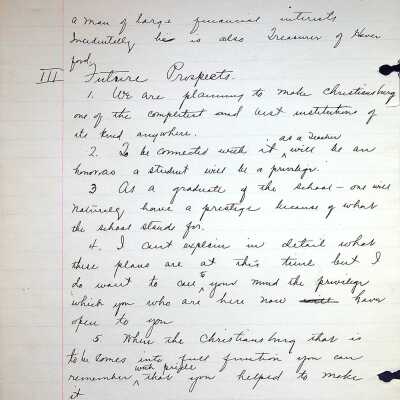 a man of large financial interests
Incidentally he is also Treasurer of Haver
ford,
III Future Prospects.
1. We are planning to make Christiansburg
one of the completest and best institutions of
its kind anywhere.
as a Teacher
2. To be connected with it ^ will be an
honor, as a student will be a privilege.
3 As a graduate of the school - one will
naturally have a prestige because of what
the school stands for.
4. I can't explain in detail what
these plans are at this time but I
do want to call ^to your mind the privilege
which you who are here now have
open to you
5. When the Christiansburg that is
to be comes into full function you can
with pride
remember ^ that you helped to make
it